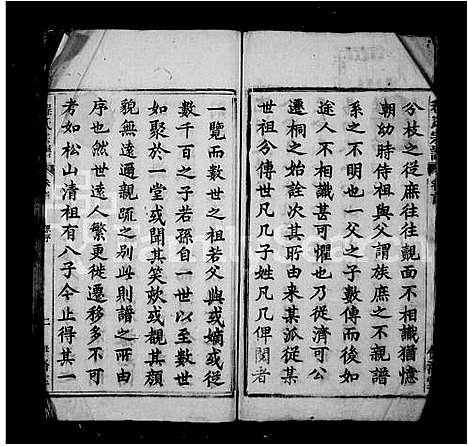 分枝之從庶往往覿面不相識猶憶
朝幼時侍祖與父謂族庶之不親譜
系之不明也一父之子數傳而後如
途人不相識甚可懼也乃從濟可公
遷桐之始詮次其所由來某派從某
世祖分傳世凡几子姓凡几俾閱者
一覽而數世之祖若父與或嫡或從
數千百之子若孫自一世以至數世
如聚於一堂或聞其笑欬或覩其顏
貌無遠遁親疏之别此則譜之所由
序也然世遠人繁更徙遷移多不可
考如松山清祖有八子今止得其一